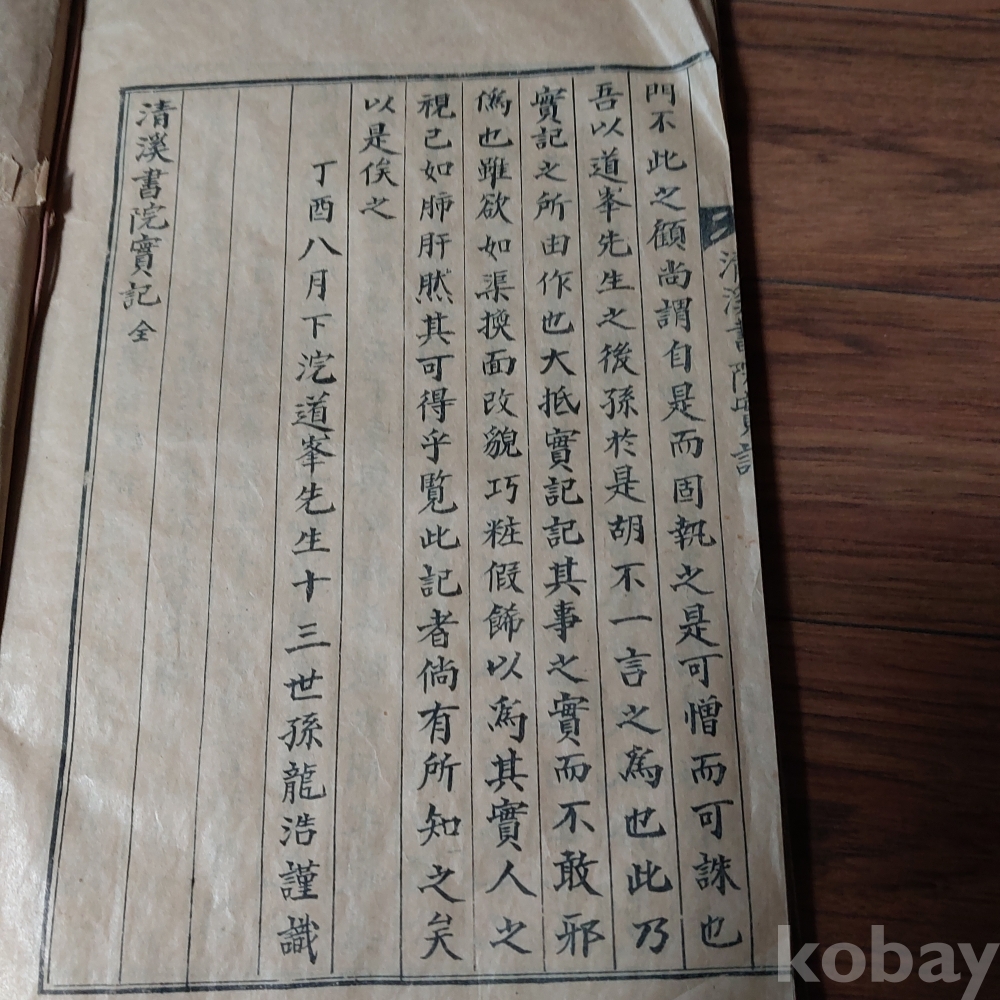 門不此之顧尚謂自是而固執之是可憎而可誅也
吾以道峯先生之後孫於是胡不一言之爲也此乃
實記之所由作也大抵實記記其事之實而不敢邪
僞也雖欲如渠換面改貌巧粧假餙以爲其實人之
視已如肺肝然其可得乎覧此記者倘有所知之矣
以是俟之
丁酉八月下浣道峯先生十三世孫龍浩謹識
清溪書院實記 全
清溪書院實記
kobay